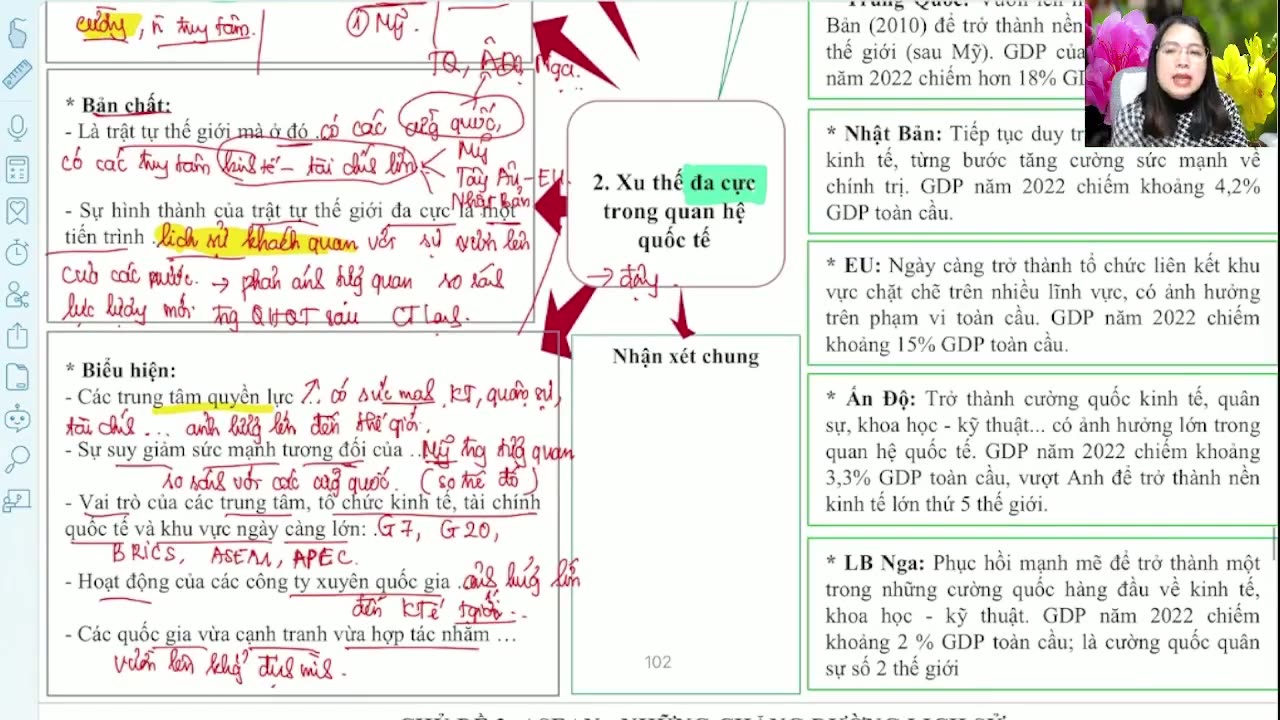 cường, ñ trung tâm.
① Mỹ.
TQ, Ấn Độ, Nga..
* Bản chất:
- Là trật tự thế giới mà ở đó có các cường quốc,
có các trung tâm kinh tế - tài chính lớn
Mỹ
Tây Âu - EU.
Nhật Bản
- Sự hình thành của trật tự thế giới đa cực là một
tiến trình lịch sử khách quan với sự vươn lên
của các nước. → phản ánh tương quan so sánh
lực lượng mới trong QHQT sau CT lạnh.
* Biểu hiện:
- Các trung tâm quyền lực ↑. có sức mạnh KT, quân sự,
tài chính ... ảnh hưởng lớn đến thế giới.
- Sự suy giảm sức mạnh tương đối của .. Mỹ trong tương quan
so sánh với các cường quốc. (so thế đó)
- Vai trò của các trung tâm, tổ chức kinh tế, tài chính
quốc tế và khu vực ngày càng lớn: G7, G20,
BRICS, ASEM, APEC.
- Hoạt động của các công ty xuyên quốc gia ảnh hưởng lớn
đến KTế
- Các quốc gia vừa cạnh tranh vừa hợp tác nhằm ...
vươn lên khẳng định mình.
2. Xu thế đa cực
trong quan hệ
quốc tế
→ đây.
Nhận xét chung
102
Bản (2010) để trở thành nền
thế giới (sau Mỹ). GDP của
năm 2022 chiếm hơn 18%
* Nhật Bản: Tiếp tục duy
kinh tế, từng bước tăng cường sức mạnh về
chính trị. GDP năm 2022 chiếm khoảng 4,2%
GDP toàn cầu.
* EU: Ngày càng trở thành tổ chức liên kết khu
vực chặt chẽ trên nhiều lĩnh vực, có ảnh hưởng
trên phạm vi toàn cầu. GDP năm 2022 chiếm
khoảng 15% GDP toàn cầu.
* Ấn Độ: Trở thành cường quốc kinh tế, quân
sự, khoa học - kỹ thuật... có ảnh hưởng lớn trong
quan hệ quốc tế. GDP năm 2022 chiếm khoảng
3,3% GDP toàn cầu, vượt Anh để trở thành nền
kinh tế lớn thứ 5 thế giới.
* LB Nga: Phục hồi mạnh mẽ để trở thành một
trong những cường quốc hàng đầu về kinh tế,
khoa học - kỹ thuật. GDP năm 2022 chiếm
khoảng 2 % GDP toàn cầu; là cường quốc quân
sự số 2 thế giới